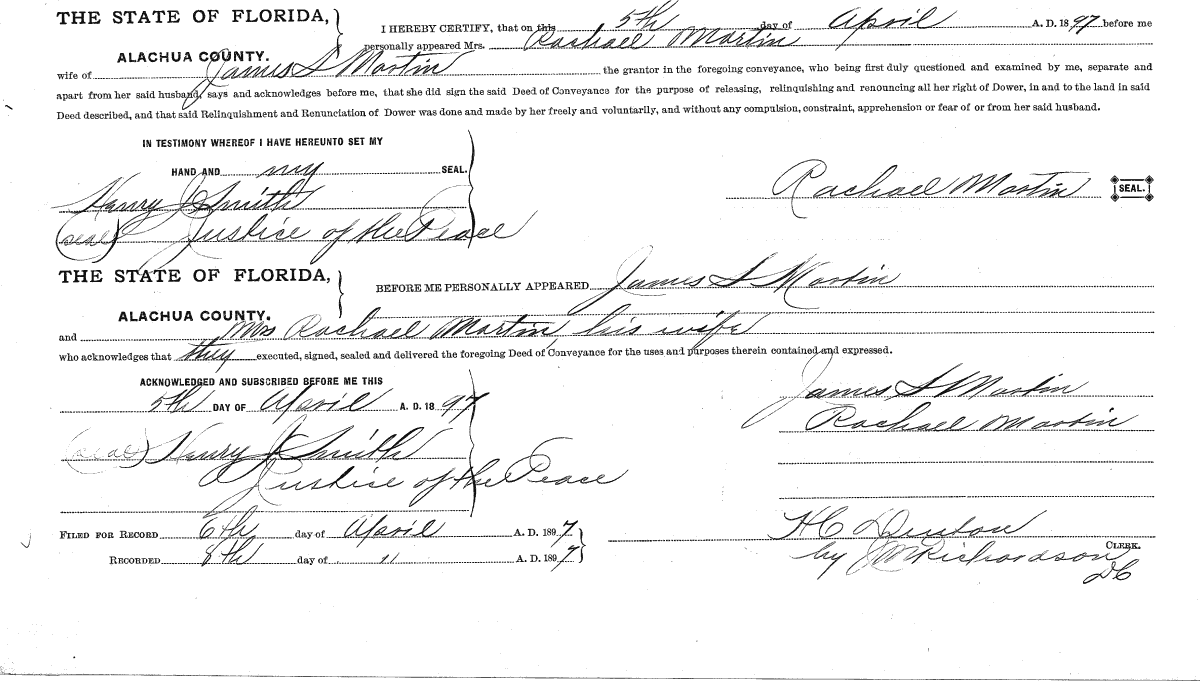 THE STATE OF FLORIDA,
ALACHUA COUNTY.
I HEREBY CERTIFY, that on this 5th day of April A. D. 1897 before me
personally appeared Mrs. Rachael Martin
wife of James S Martin the grantor in the foregoing conveyance, who being first duly questioned and examined by me, separate and
apart from her said husband, says and acknowledges before me, that she did sign the said Deed of Conveyance for the purpose of releasing, relinquishing and renouncing all her right of Dower, in and to the land in said
Deed described, and that said Relinquishment and Renunciation of Dower was done and made by her freely and voluntarily, and without any compulsion, constraint, apprehension or fear of or from her said husband.
IN TESTIMONY WHEREOF I HAVE HEREUNTO SET MY
HAND AND my SEAL.
Henry J Smith
(seal) Justice of the Peace
Rachael Martin SEAL.
THE STATE OF FLORIDA,
ALACHUA COUNTY.
BEFORE ME PERSONALLY APPEARED James S Martin
and Mrs Rachael Martin, his wife
who acknowledges that they executed, signed, sealed and delivered the foregoing Deed of Conveyance for the uses and purposes therein contained and expressed.
ACKNOWLEDGED AND SUBSCRIBED BEFORE ME THIS
5th DAY OF April A. D. 1897
(seal) Henry J Smith
Justice of the Peace
James S Martin
Rachael Martin
FILED FOR RECORD 6th day of April A. D. 1897
RECORDED 8th day of " A. D. 1897
H C Denton
CLERK.
by J M Richardson
DC